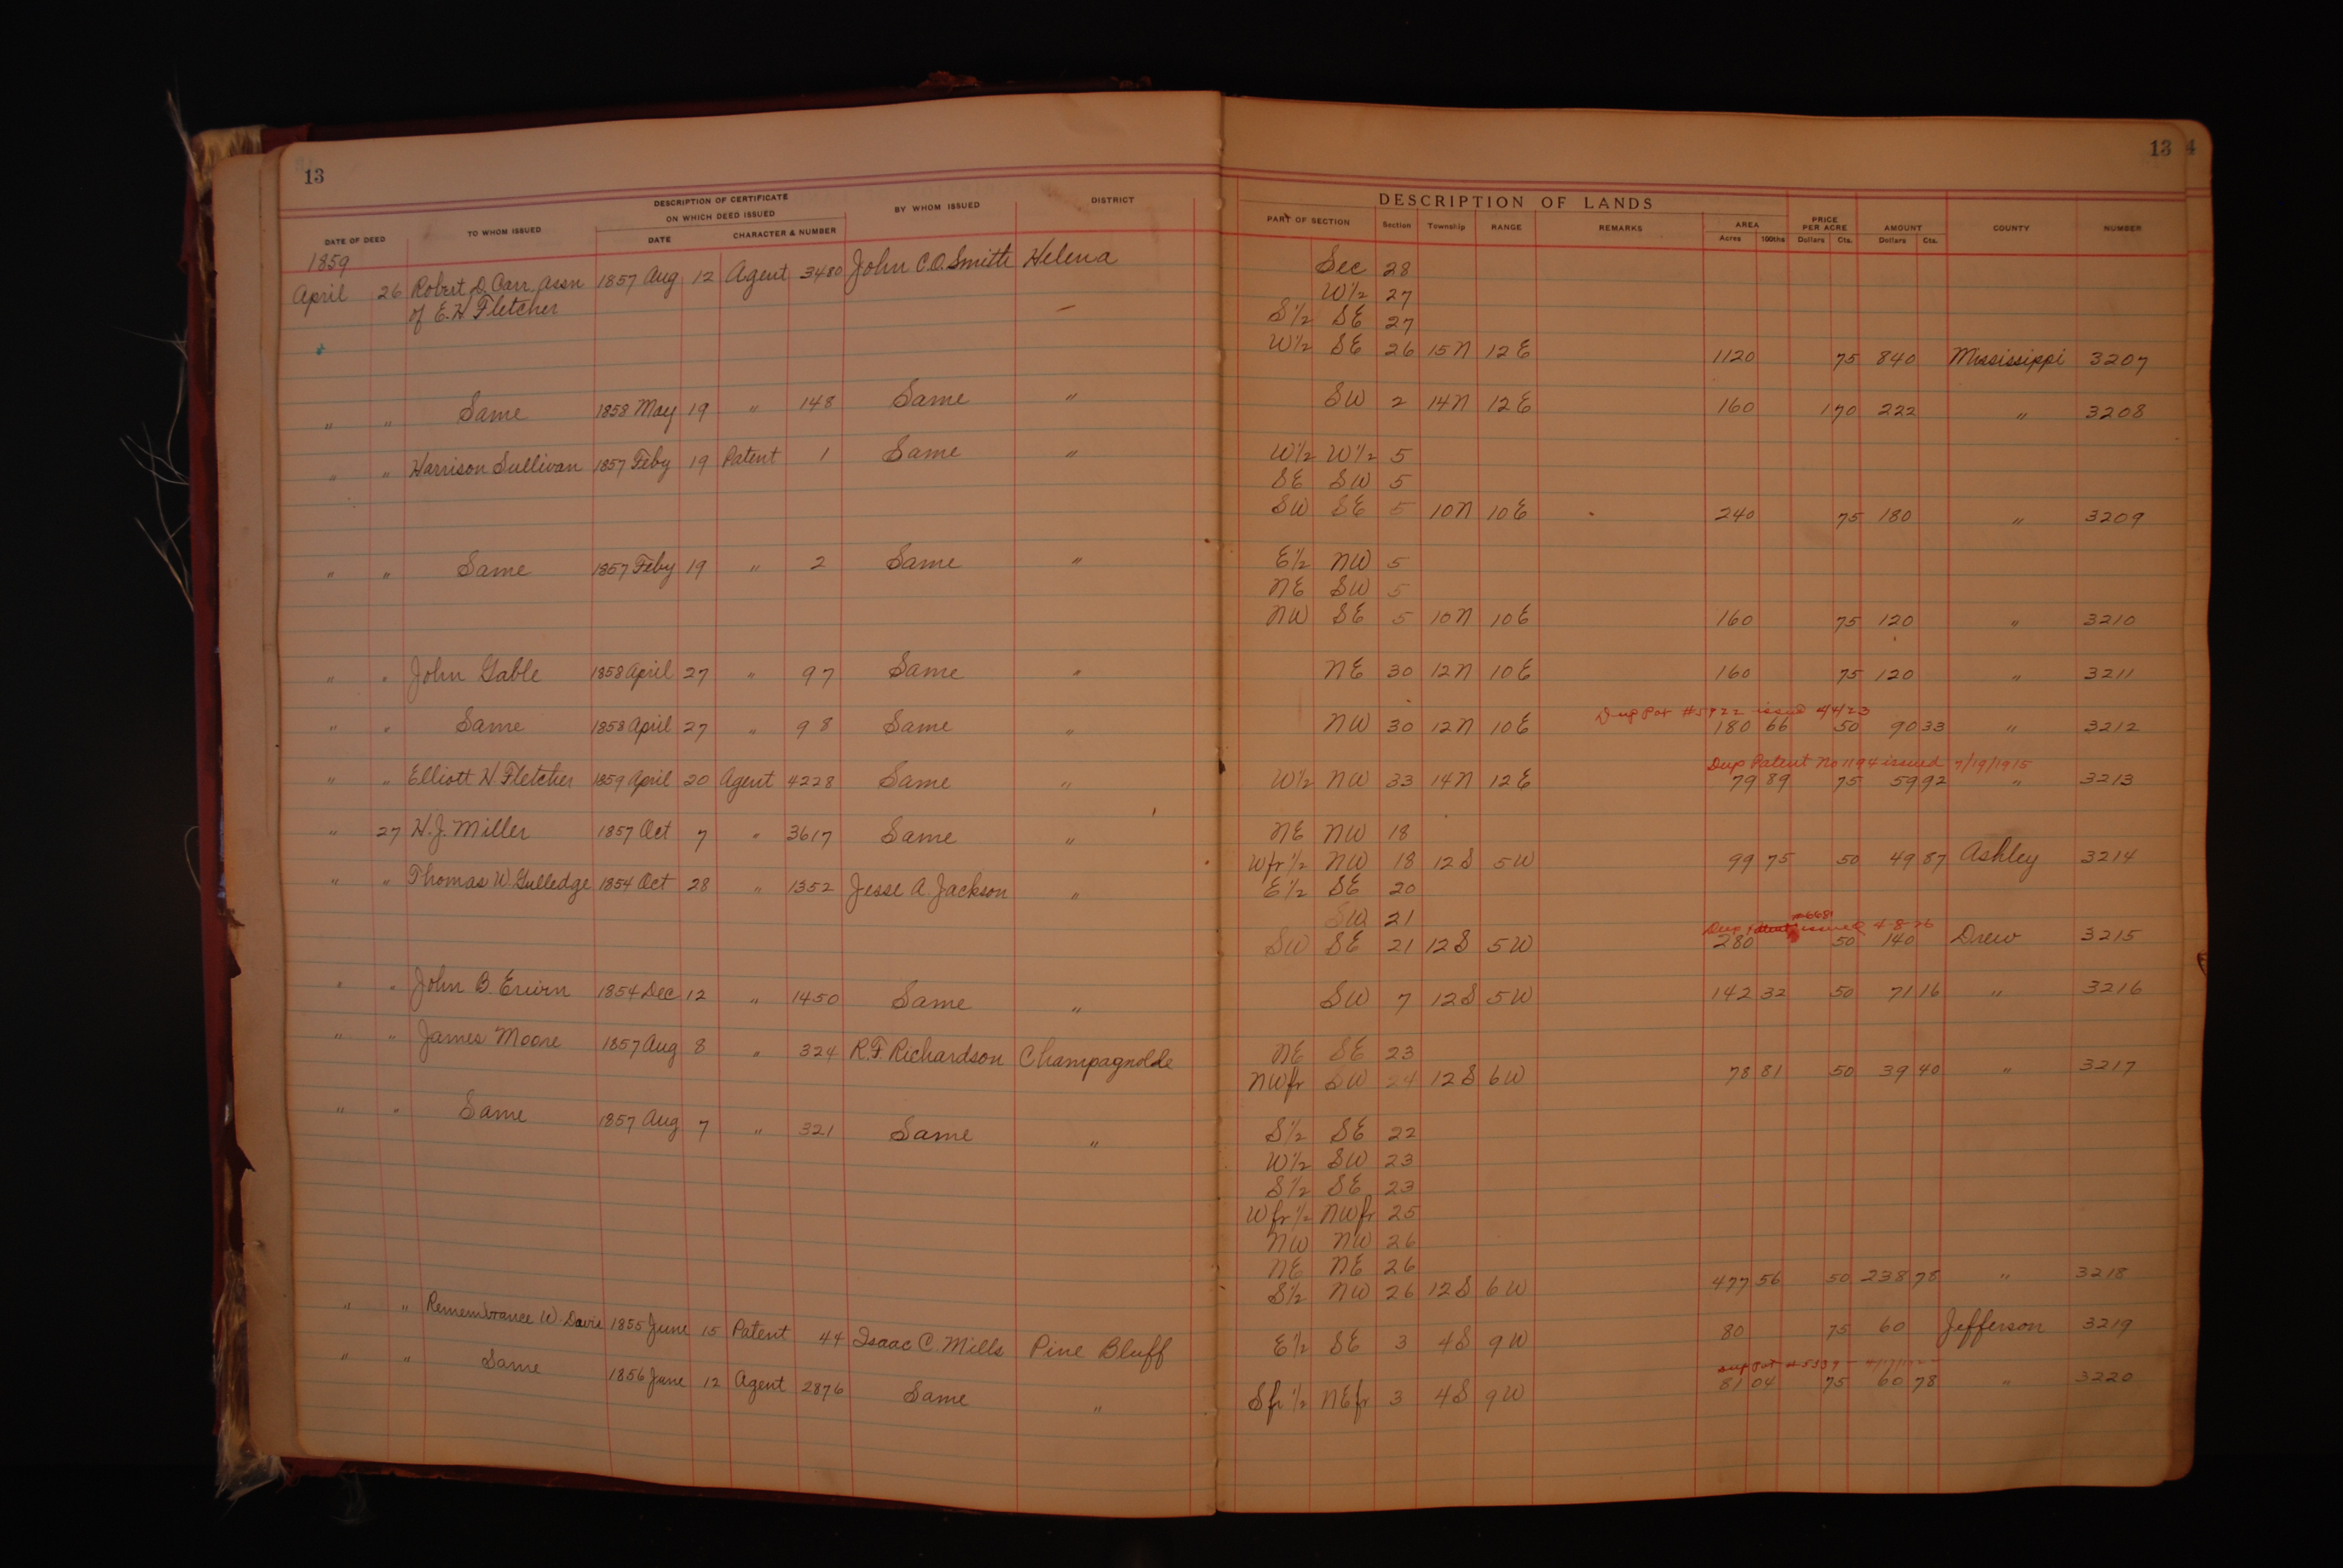 13
13 4
DESCRIPTION OF CERTIFICATE
ON WHICH DEED ISSUED
DATE OF DEED TO WHOM ISSUED DATE CHARACTER & NUMBER BY WHOM ISSUED DISTRICT
DESCRIPTION OF LANDS
PART OF SECTION Section Township RANGE REMARKS AREA PRICE PER ACRE AMOUNT COUNTY NUMBER
Acres 100ths Dollars Cts. Dollars Cts.
1859
April 26 Robert Q. Carr Assn 1857 Aug 12 Agent 3480 John C.O. Smith Helena Sec 28
of E.H. Fletcher W½ 27
S½ SE 27
W½ SE 26 15N 12E 1120 75 840 Mississippi 3207
" " Same 1858 May 19 " 148 Same " SW 2 14N 12E 160 170 222 " 3208
" " Harrison Sullivan 1857 Feby 19 Patent 1 Same " W½ W½ 5
SE SW 5
SW SE 5 10N 10E 240 75 180 " 3209
" " Same 1857 Feby 19 " 2 Same " E½ NW 5
NE SW 5
NW SE 5 10N 10E 160 75 120 " 3210
" " John Gable 1858 April 27 " 97 Same " NE 30 12N 10E 160 75 120 " 3211
Dup Pat issued 4/4/23
" " Same 1858 April 27 " 98 Same " NW 30 12N 10E 180 66 50 90 33 " 3212
Dup Patent No 1194 issued 7/19/1915
" " Elliott H. Fletcher 1859 April 20 Agent 4228 Same " W½ NW 33 14N 12E 79 89 75 59 92 " 3213
" 27 H.J. Miller 1857 Oct 7 " 3617 Same " NE NW 18
Wfr½ NW 18 12S 5W 99 75 50 49 87 Ashley 3214
" " Thomas W. Gulledge 1854 Oct 28 " 1352 Jesse A. Jackson " E½ SE 20
SW 21
#6681
Dup Patent issued 4-8-26
SW SE 21 12S 5W 280 50 140 Drew 3215
" " John B. Erwin 1854 Dec 12 " 1450 Same " SW 7 12S 5W 142 32 50 71 16 " 3216
" " James Moore 1857 Aug 8 " 324 R.F. Richardson Champagnolde NE SE 23
NWfr SW 24 12S 6W 78 81 50 39 40 " 3217
" " Same 1857 Aug 7 " 321 Same " S½ SE 22
W½ SW 23
S½ SE 23
Wfr½ NWfr 25
NW NW 26
NE NE 26
S½ NW 26 12S 6W 477 56 50 238 78 " 3218
" " Remembrance W. Davie 1855 June 15 Patent 44 Isaac C. Mills Pine Bluff E½ SE 3 4S 9W 80 75 60 Jefferson 3219
Dup Pat
" " Same 1856 June 12 Agent 2876 Same " Sfr½ NEfr 3 4S 9W 81 04 75 60 78 " 3220